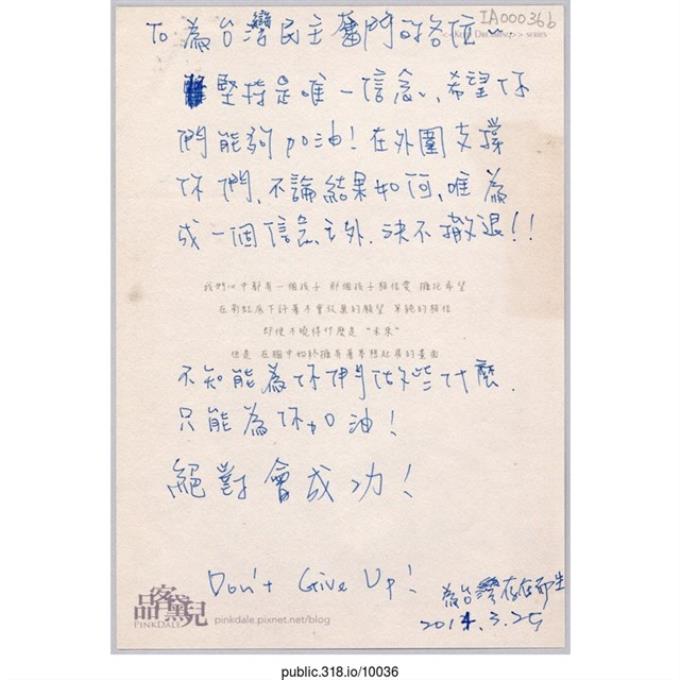 IA00036b
To 為台灣民主奮鬥的各位~
<<Keep Dreaming>> series
堅持是唯一信念,希望你
們能夠加油!在外圍支撐
你們,不論結果如何,唯為
成一個信念主外,決不撤退!!
我們心中都有一個孩子 那個孩子相信愛 擁抱希望
在彩虹底下許著不會放棄的願望 單純的相信
即使不曉得什麼是“未來”
但是 在腦中始終擁有著夢想起飛的畫面
不知能為你們做些什麼,
只能為你加油!
絕對會成功!
Don't Give Up!
為台灣存在而生
2014.3.25
品客黛兒
PINKDALE
pinkdale.pixnet.net/blog
public.318.io/10036